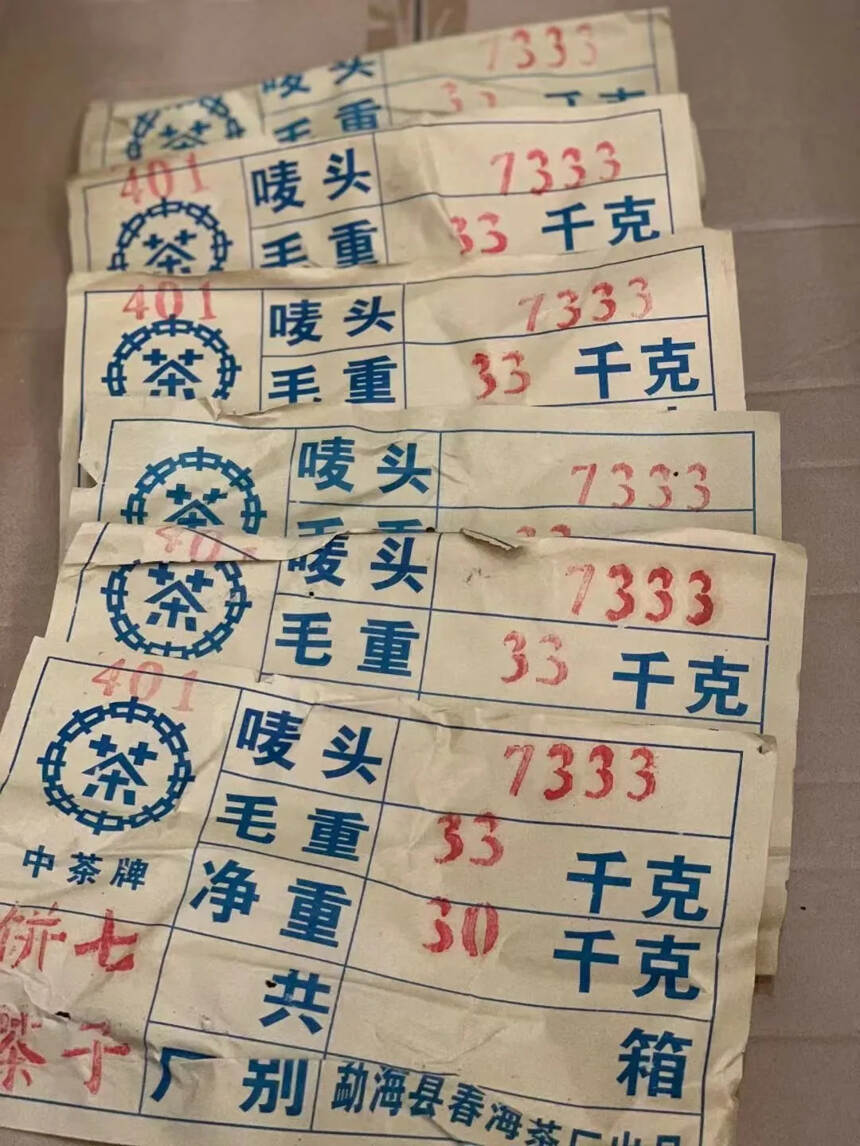 唛头 7333
毛重 33 千克
401
茶
唛头 7333
毛重 33 千克
401
茶
唛头 7333
毛重 33 千克
茶
唛头 7333
401
茶
唛头 7333
毛重 33 千克
401
茶
中茶牌
唛头 7333
毛重 33 千克
净重 30 千克
饼七
茶子
共 箱
厂别 勐海县春海茶厂出品